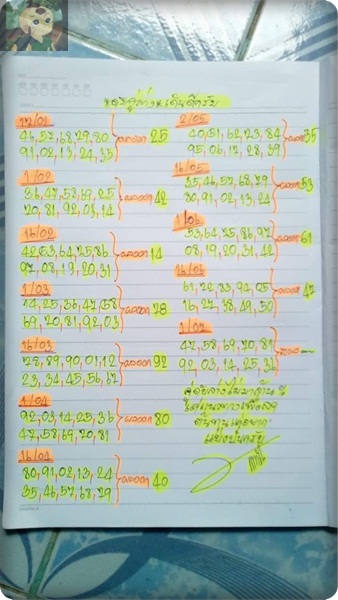 17/01
46,52,68,79,80
91,02,13,24,35
ผลออก 25
1/02
36,47,58,69,25
70,81,92,03,14
ผลออก 42
16/02
42,53,64,75,86
97,08,19,20,31
ผลออก 14
1/03
14,25,36,47,58
69,70,81,92,03
ผลออก 28
16/03
78,89,90,01,12
23,34,45,56,67
ผลออก 92
1/04
92,03,14,25,36
47,58,69,70,81
ผลออก 80
16/04
80,91,02,13,24
35,46,57,68,79
ผลออก 40
2/05
40,51,62,73,84
95,06,17,28,39
ผลออก 35
16/05
35,46,57,68,79
80,91,02,13,24
ผลออก 53
1/06
53,64,75,86,97
08,19,20,31,42
ผลออก 61
16/06
61,72,83,94,05
16,27,38,49,50
ผลออก 47
1/07
47,58,69,70,81
92,03,14,25,36